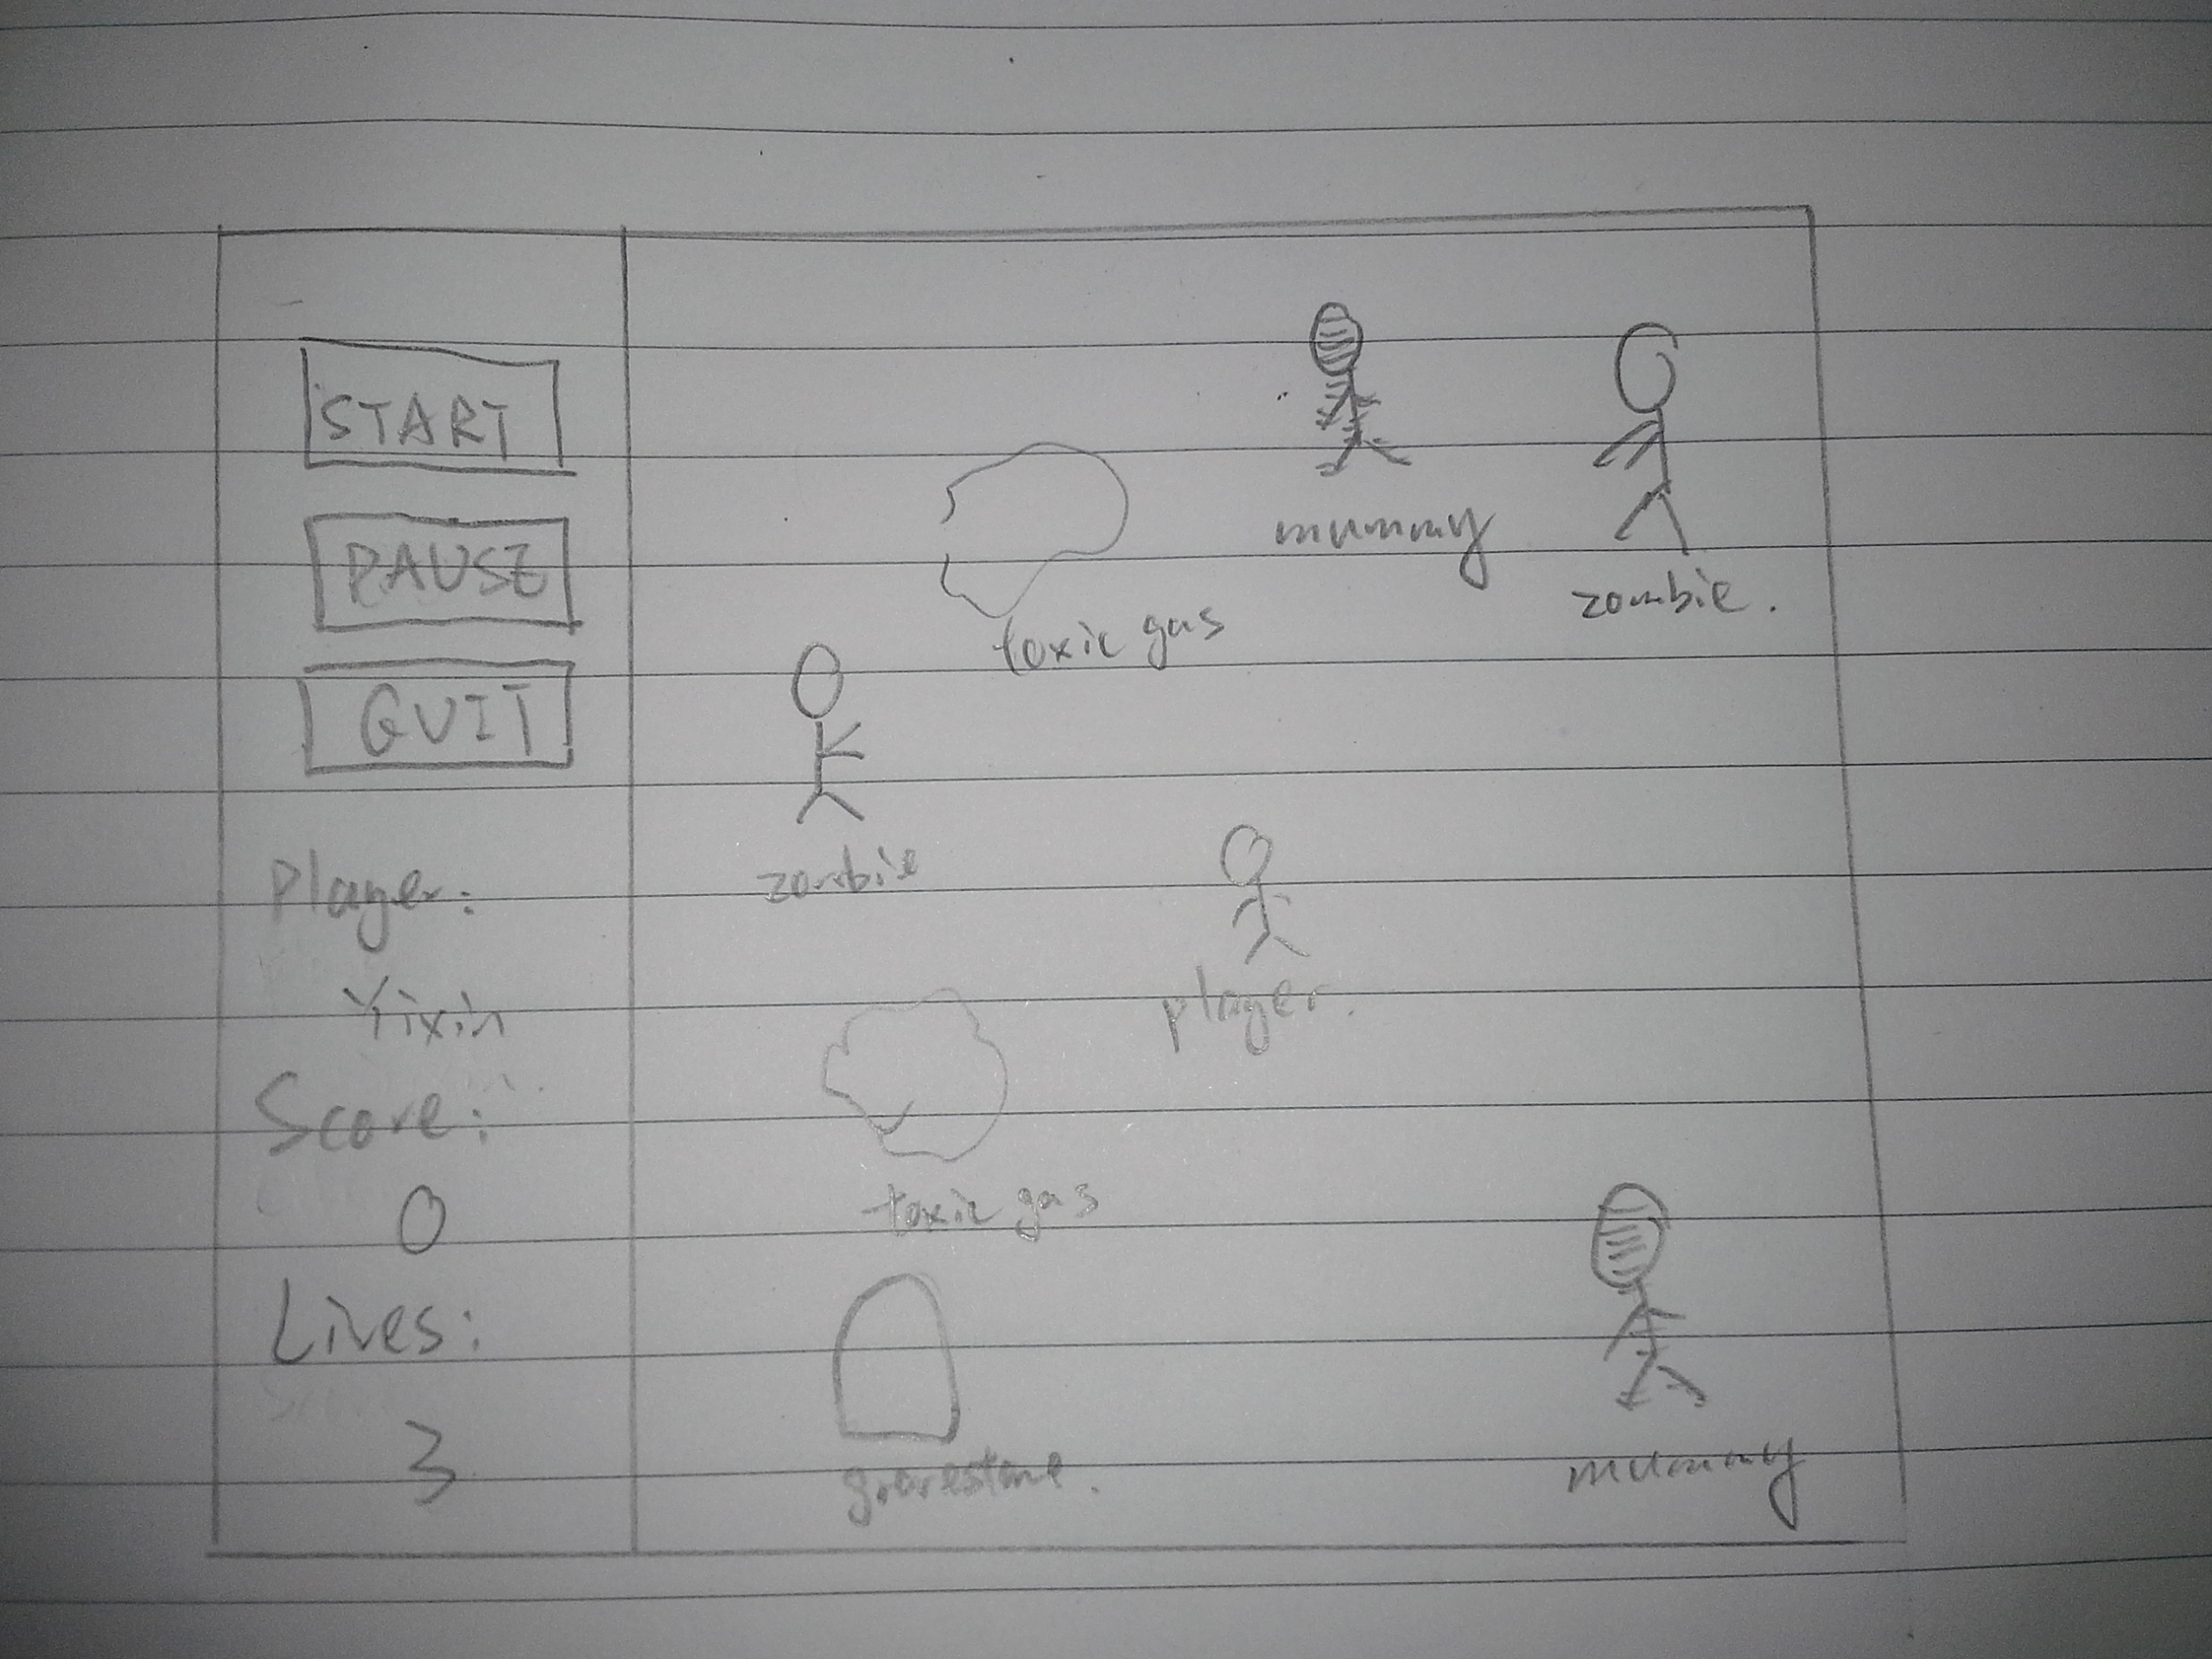 START
PAUSE
QUIT
Player:
Yixin
Score:
0
Lives:
3
mummy
zombie.
toxic gas
zombie
player.
toxic gas
gravestone.
mummy